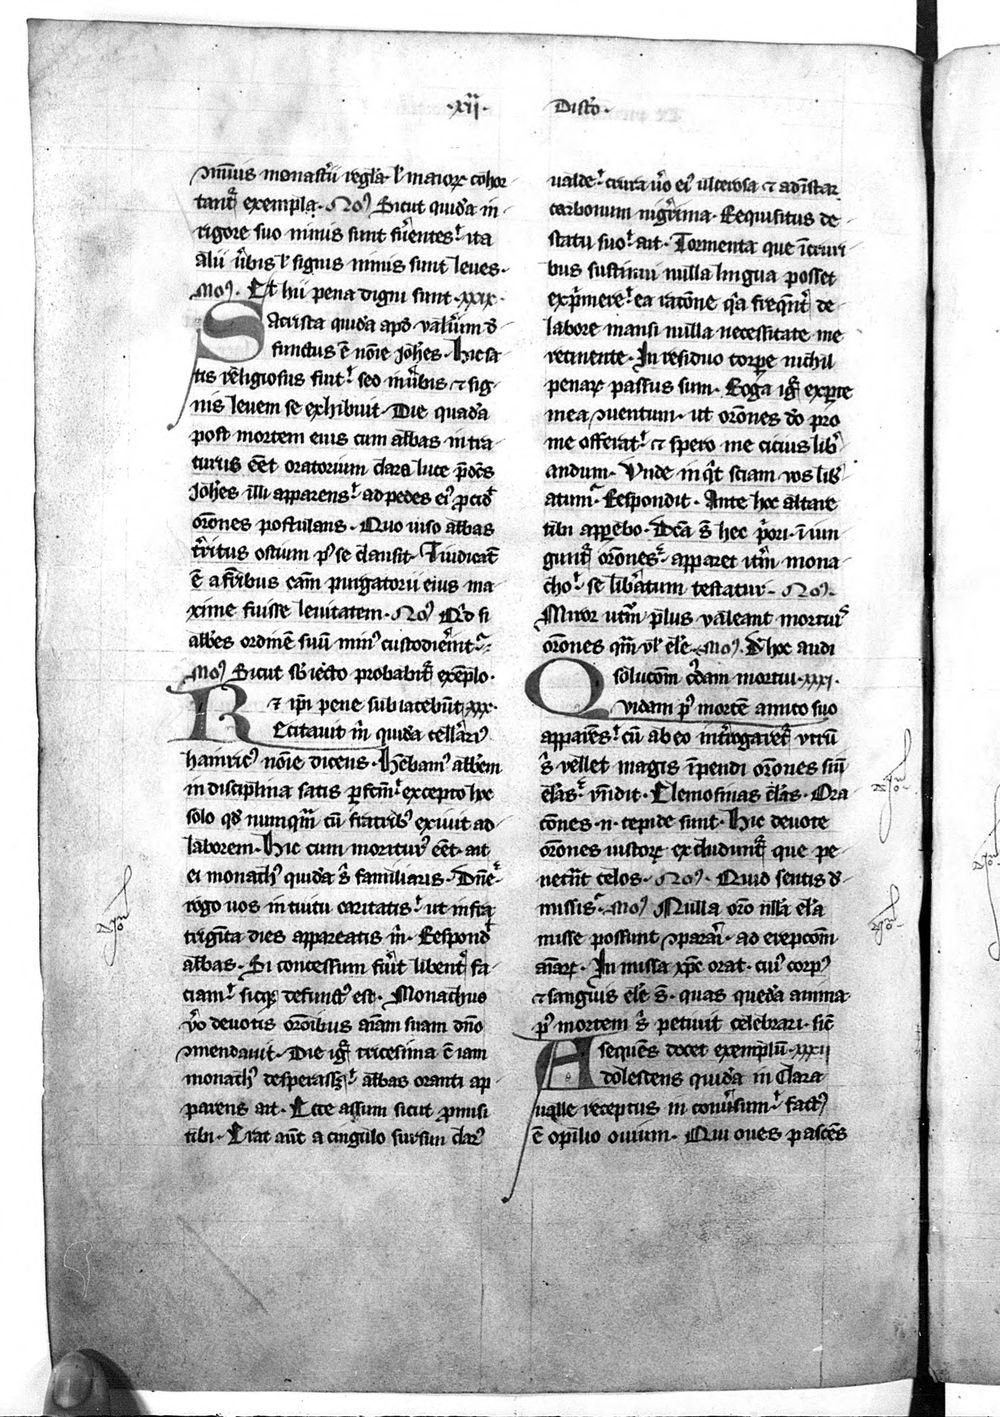 ·xii· Distͨo·
ↄmunis monastʼii regl̄a· lʼ maioꝝ cohor
tantʼ exempla· Noꝰ Sicut quida in
rigore suo nimis sunt fʼuentes· ita
alii ūbis lʼ signis nimis sunt leues·
Moꝰ· Et hii pena digni sunt· xxix·
Sacrista quida apd vallum d
functus ē noīe joh̄es· Hic sa
tis religiosus fuit· seo in ūbis ⁊ sig
nis leuem se exhibuit· Die quada
post mortem eius cum abbas intra
turus eēt oratorium clara luce p̄dc̄s
Joh̄es illi apparens· ad pedes eiꝰ ꝓcidʼ
orōnes postulans· Quo uiso abbas
tʼritus ostium pꝰ se clausit· Iudicatū
ē a fr̄ibus cām purgatorii eius ma
xime fuisse leuitatem· Noꝰ Qd si
abb̄es ordinē suū minꝰ custodieʼint
Moꝰ Sicut sbʼiecto probabitʼ exēplo·
⁊ ip̄i pene subiacebūt· xxx·
Recitauit m̄ quida cellʼariꝰ
hainricꝰ noīe dicens· Hēbamꝰ abbem
in disciplina satis ꝑfcm̄ excepto hoc
solo qd numqm̄ cū fratribꝰ exiuit ad
laborem· Hic cum moriturꝰ eēt· ait
ei monachꝰ quida s̄ familiaris· Dn̄e
rogo uos intuitu caritatis· ut infra
triginta dies appareatis m̄· Respondʼ
abbas· Si concessum fuʼit libentʼ fa
ciam· sicqꝫ defunctꝰ est· Monachus
v̄o deuotis orōnibus aīam suam dn̄o
ↄmendauit· Die igʼ tricesima ē iam
monachꝰ desperasset· abbas oranti ap
parens ait· Ecce assum sicut ꝓmisi
tibi· Erat aūt a cingulo sursum clarꝰ
ualde· crura v̄o eiꝰ ulcerosa ⁊ ad instar
carbonum nigʼrima· Requisitus de
statu suo· ait· Tormenta que ī cruri
bus sustinui nulla lingua posset
exp̄mere· ea racōne q̄a freqn̄tʼ de
labore mansi nulla necessitate me
retinente· In residuo corpe nichil
penaꝝ passus sum· Roga igʼ ex parte
mea ↄuentum· ut orōnes dō pro
me offerat· ⁊ spero me cicius libʼ
andum· Vnde inqt sciam vos libʼ
atum· Respondit· Ante hoc altare
tibi appebo· Dc̄a s̄ hec p̄ori· iniun
guntʼ orōnes· apparet itm̄ mona
cho· se libʼatum testatur· Noꝰ·
Miror utm̄ plus valeant mortuis
orōnes qm̄ vlʼ elē· Moꝰ· D hoc audi
solucōm cʼdam mortui· xxxi·
Quidam pꝰ mortē amico suo
apparēs· cū ab eo intʼrogaretʼ vtrū
s̄ vellet magis īpendi orōnes siū
elās· rn̄dit· Elemosinas elās· Ora
cōnes ·n· tepide sunt· Hic deuote
orōnes iustoꝝ excluduntʼ que pe
netn̄t celos· Noꝰ· Quid sentis d
missis· Moꝰ Nulla orō nlla ela
misse possunt ↄparari· ad erepcōm
aīaꝝ· In missa xp̄c orat· cuiꝰ corpꝰ
⁊ sanguis elē s̄· quas queda anima
pꝰ mortem s̄ petiuit celebrari· sic
sequēs docet exemplū· xxxii
Adolescens quida in Clara
ualle receptus in conuʼsum· factꝰ
ē opilio ouium· Qui oues pascēs